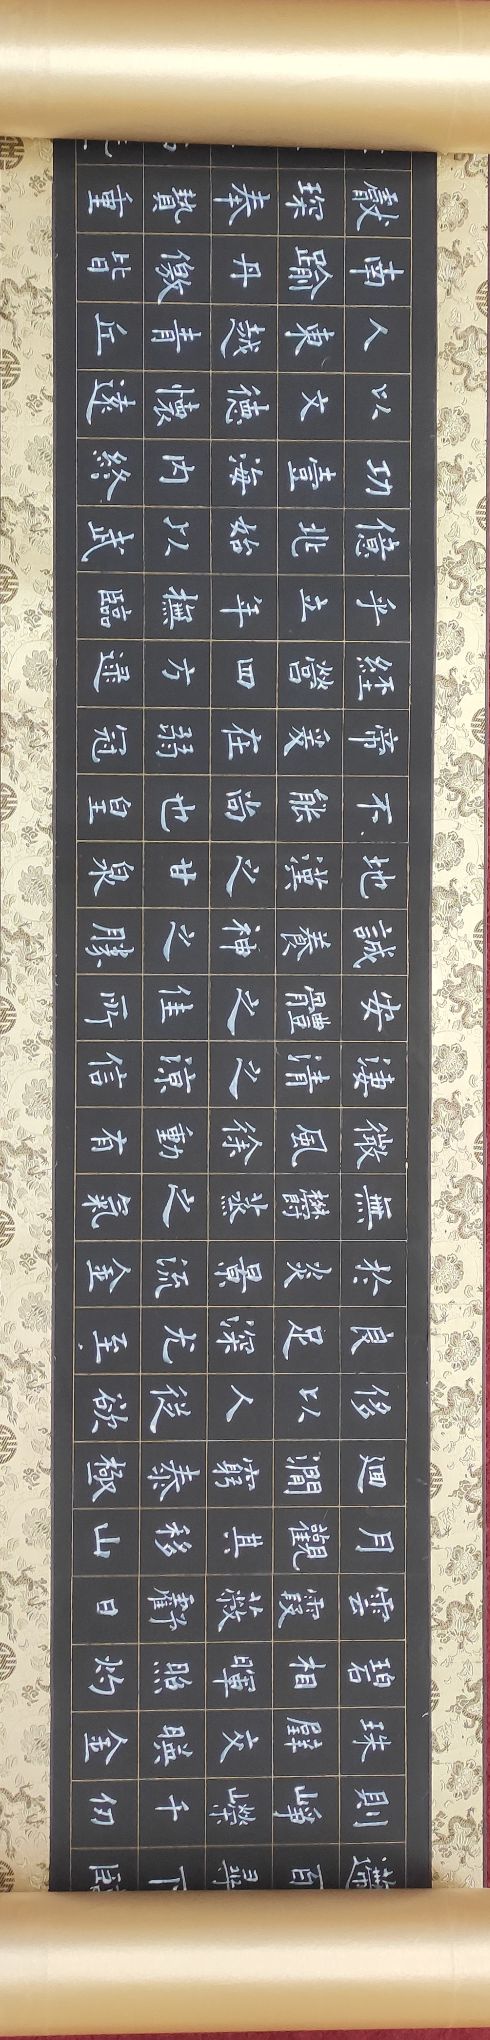 百尋下臨
則崢嶸千仞
珠璧交映金
碧相暉照灼
雲霞蔽虧日
月觀其移山
迴澗窮泰極
侈以人從欲
良足深尤至
於炎景流金
無鬱蒸之氣
微風徐動有
淒清之涼信
安體之佳所
誠養神之勝
地漢之甘泉
不能尚也皇
帝爰在弱冠
經營四方逮
乎立年撫臨
億兆始以武
功壹海內終
以文德懷遠
人東越青丘
南踰丹徼皆
獻琛奉贄重